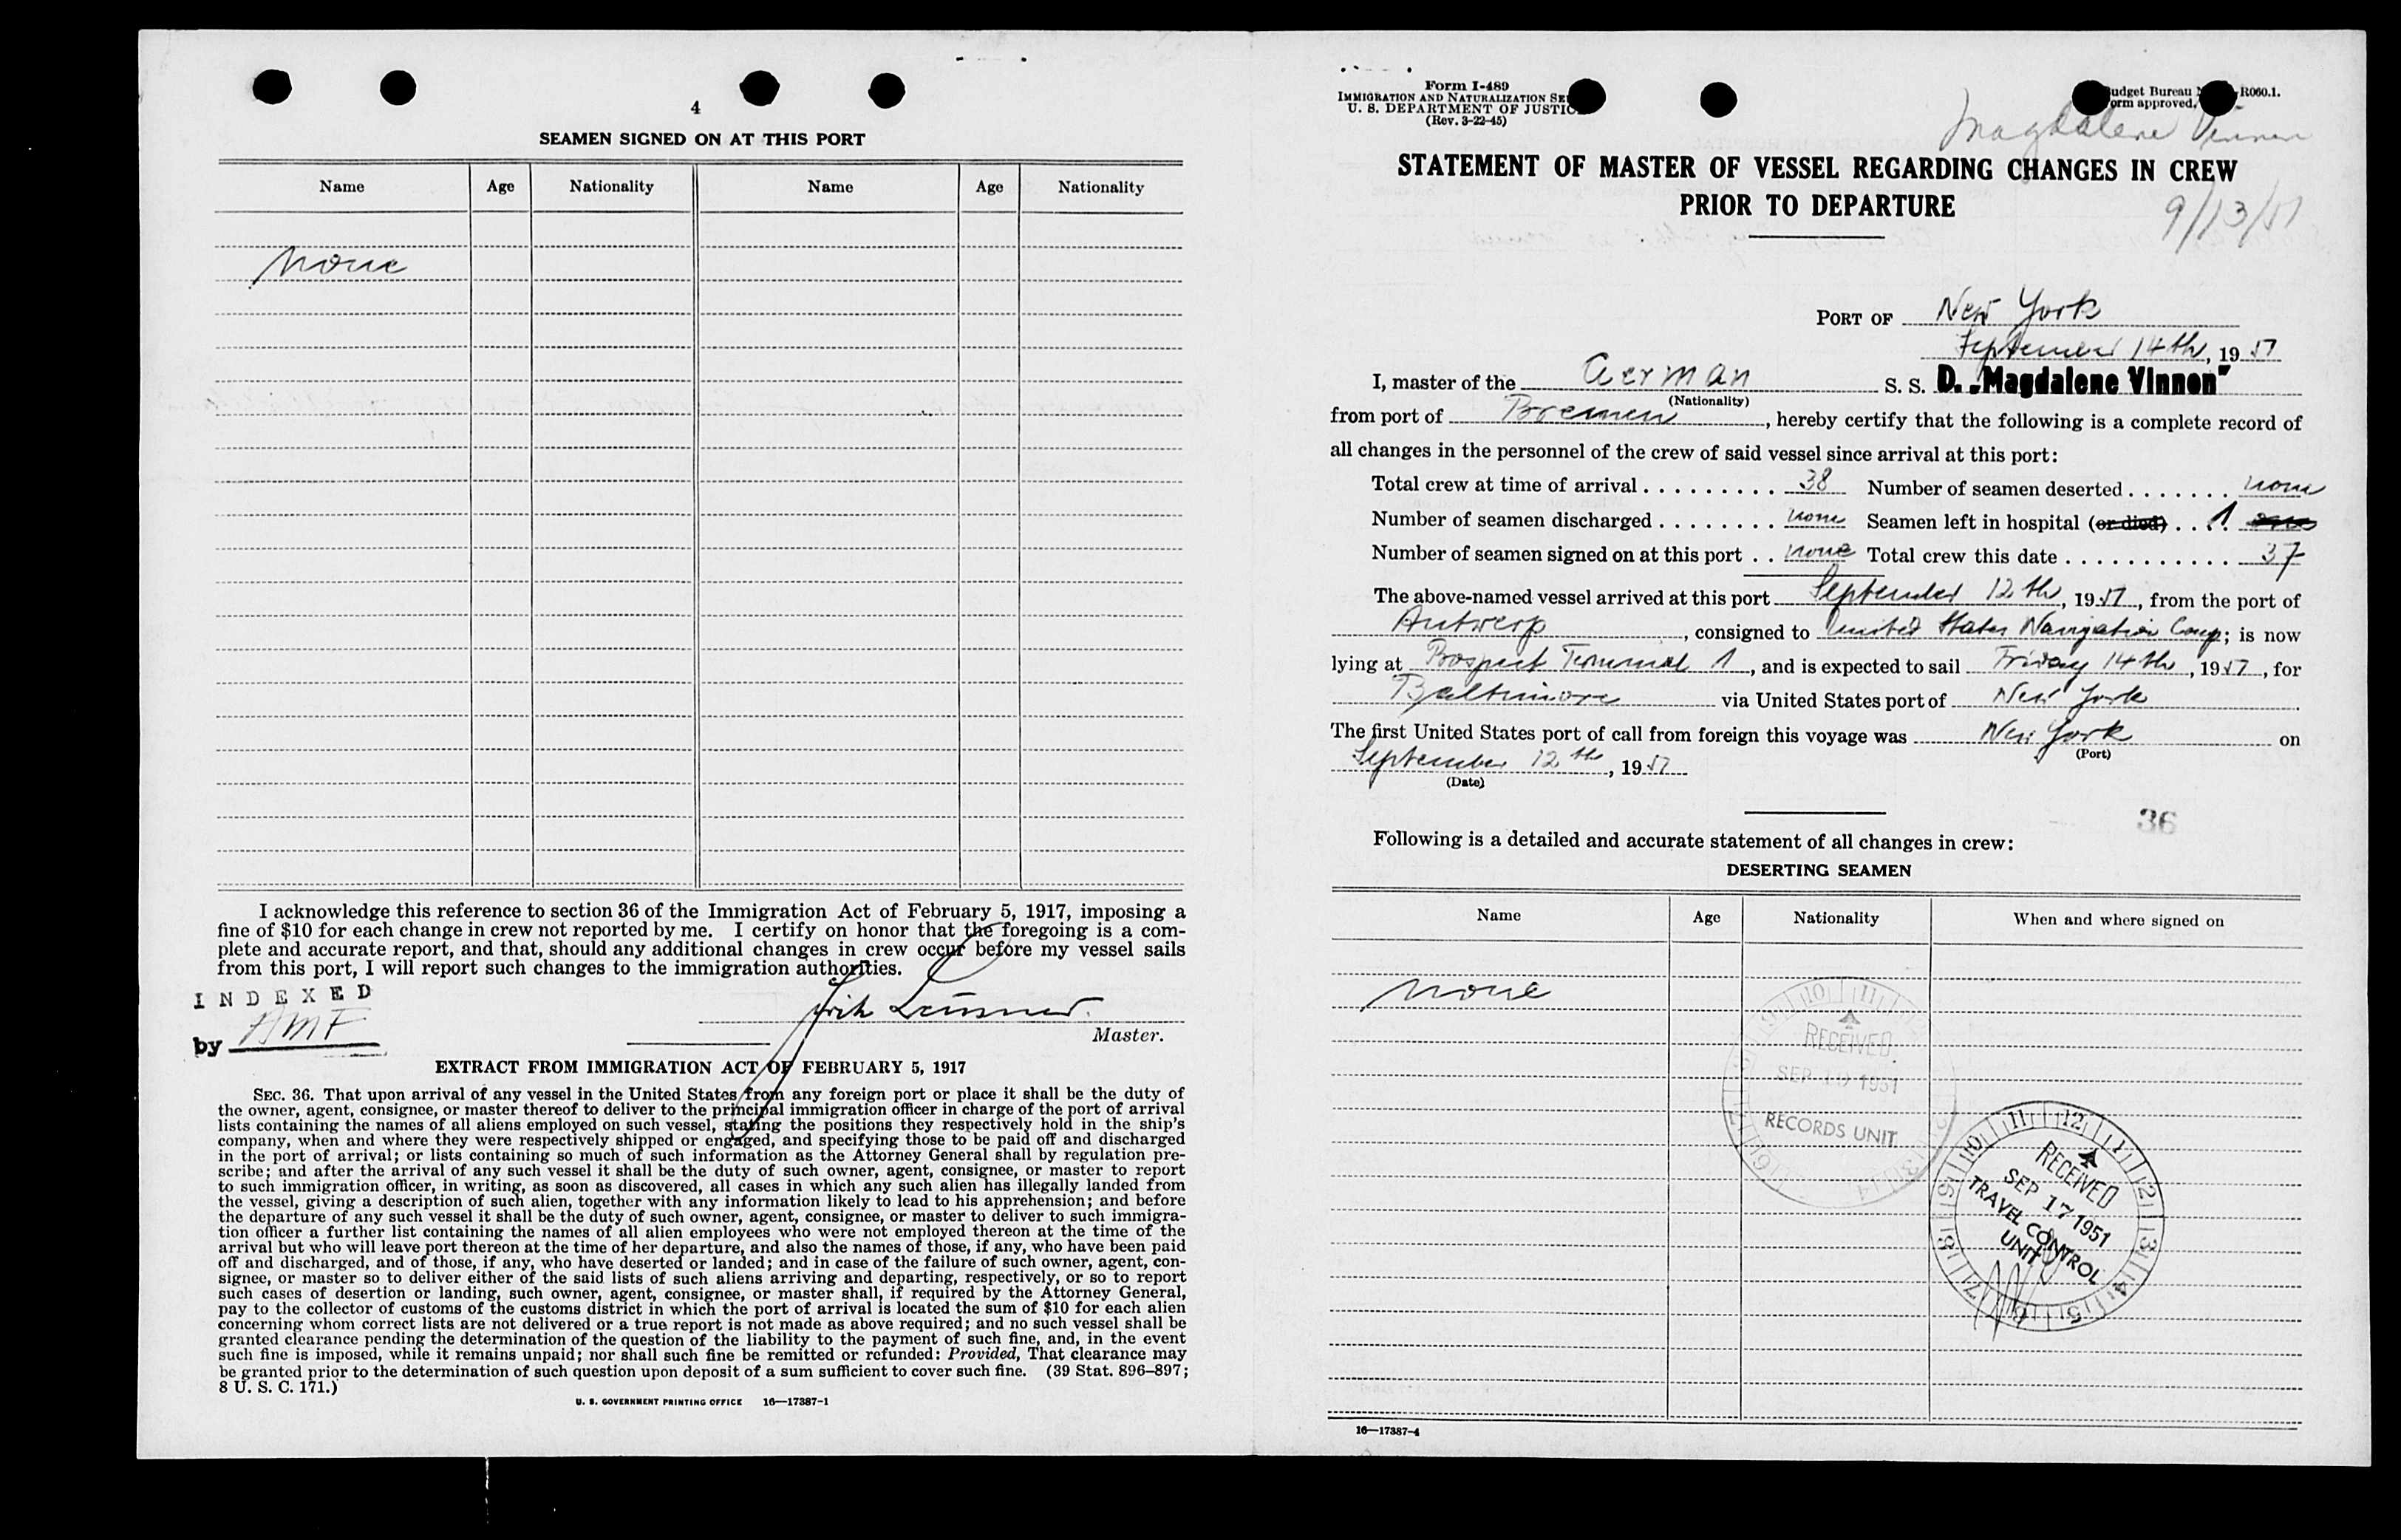 4
SEAMEN SIGNED ON AT THIS PORT
Name Age Nationality Name Age Nationality
None
I acknowledge this reference to section 36 of the Immigration Act of February 5, 1917, imposing a
fine of $10 for each change in crew not reported by me. I certify on honor that the foregoing is a com-
plete and accurate report, and that, should any additional changes in crew occur before my vessel sails
from this port, I will report such changes to the immigration authorities.
INDEXED
by AMF
Master.
EXTRACT FROM IMMIGRATION ACT OF FEBRUARY 5, 1917
SEC. 36. That upon arrival of any vessel in the United States from any foreign port or place it shall be the duty of
the owner, agent, consignee, or master thereof to deliver to the principal immigration officer in charge of the port of arrival
lists containing the names of all aliens employed on such vessel, stating the positions they respectively hold in the ship's
company, when and where they were respectively shipped or engaged, and specifying those to be paid off and discharged
in the port of arrival; or lists containing so much of such information as the Attorney General shall by regulation pre-
scribe; and after the arrival of any such vessel it shall be the duty of such owner, agent, consignee, or master to report
to such immigration officer, in writing, as soon as discovered, all cases in which any such alien has illegally landed from
the vessel, giving a description of such alien, together with any information likely to lead to his apprehension; and before
the departure of any such vessel it shall be the duty of such owner, agent, consignee, or master to deliver to such immigra-
tion officer a further list containing the names of all alien employees who were not employed thereon at the time of the
arrival but who will leave port thereon at the time of her departure, and also the names of those, if any, who have been paid
off and discharged, and of those, if any, who have deserted or landed; and in case of the failure of such owner, agent, con-
signee, or master so to deliver either of the said lists of such aliens arriving and departing, respectively, or so to report
such cases of desertion or landing, such owner, agent, consignee, or master shall, if required by the Attorney General,
pay to the collector of customs of the customs district in which the port of arrival is located the sum of $10 for each alien
concerning whom correct lists are not delivered or a true report is not made as above required; and no such vessel shall be
granted clearance pending the determination of the question of the liability to the payment of such fine, and, in the event
such fine is imposed, while it remains unpaid; nor shall such fine be remitted or refunded: Provided, That clearance may
be granted prior to the determination of such question upon deposit of a sum sufficient to cover such fine. (39 Stat. 896–897;
8 U. S. C. 171.)
U. S. GOVERNMENT PRINTING OFFICE 16—17387-1
Form I-489
IMMIGRATION AND NATURALIZATION
U. S. DEPARTMENT OF
(Rev. 3-22-45)
Budget Bureau R060.1.
Form approved.
Magdalene Vinnen
STATEMENT OF MASTER OF VESSEL REGARDING CHANGES IN CREW
PRIOR TO DEPARTURE
9/13/51
PORT OF New York
September 14th, 19 51
I, master of the German S. S. D. „Magdalene Vinnen"
(Nationality)
from port of Bremen, hereby certify that the following is a complete record of
all changes in the personnel of the crew of said vessel since arrival at this port:
Total crew at time of arrival 38 Number of seamen deserted none
Number of seamen discharged none Seamen left in hospital (or died) 1
Number of seamen signed on at this port none Total crew this date 37
The above-named vessel arrived at this port September 12th, 1951, from the port of
Antwerp, consigned to United States Navigation Comp; is now
lying at Prospect Terminal 1, and is expected to sail Friday 14th, 1951, for
Baltimore via United States port of New York.
The first United States port of call from foreign this voyage was New York on
(Port)
September 12th, 1951
(Date)
36
Following is a detailed and accurate statement of all changes in crew:
DESERTING SEAMEN
Name Age Nationality When and where signed on
None
RECEIVED
SEP 19 1951
RECORDS UNIT
RECEIVED
SEP 17 1951
TRAVEL CONTROL
UNIT
16—17387-4